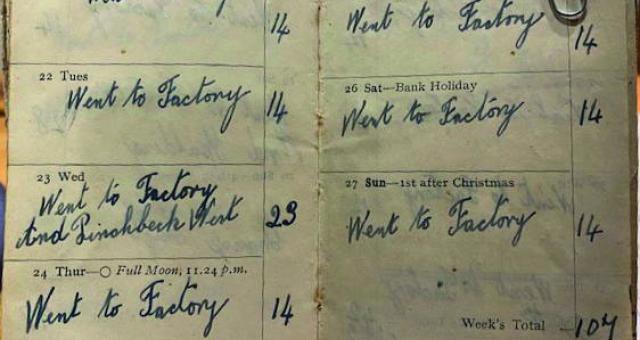 14
22 Tues
Went to Factory 14
23 Wed
Went to Factory
And Pinchbeck West 23
24 Thur—○ Full Moon, 11.24 p.m.
Went to Factory 14
Went to Factory 14
26 Sat—Bank Holiday
Went to Factory 14
27 Sun—1st after Christmas
Went to Factory 14
Week's Total 107